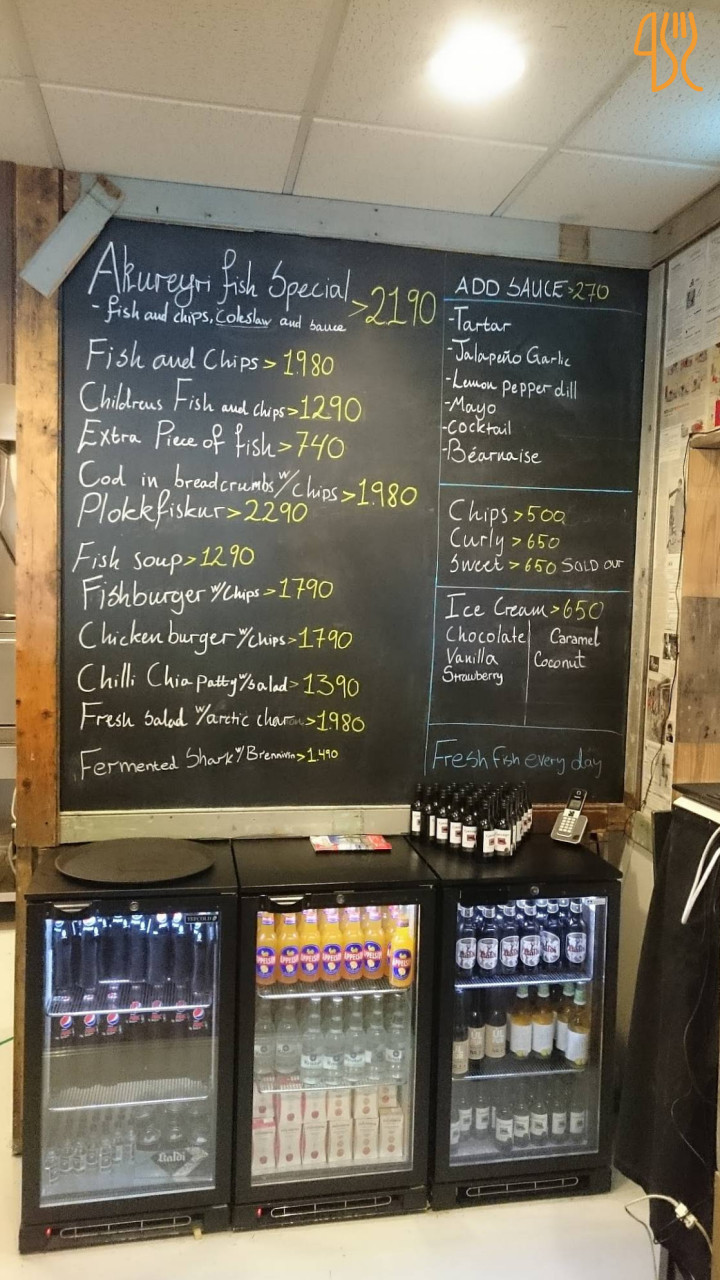 Akureyri fish Special >2190
- fish and chips, Coleslaw and sauce
Fish and Chips > 1980
Childrens Fish and chips >1290
Extra Piece of fish >740
Cod in breadcrumbs w/chips >1980
Plokkfiskur >2290
Fish soup >1290
Fishburger w/chips >1790
Chickenburger w/chips >1790
Chilli Chia patty w/salad >1390
Fresh Salad w/arctic charr >1980
Fermented Shark w/Brennivin >1.490
ADD SAUCE >270
-Tartar
-Jalapeño Garlic
-Lemon pepper dill
-Mayo
-cocktail
-Béarnaise
Chips >500
Curly >650
Sweet >650 SOLD OUT
Ice Cream >650
Chocolate
Vanilla
Strawberry
Caramel
Coconut
Fresh Fish every day
APPELSÍN
Baldi